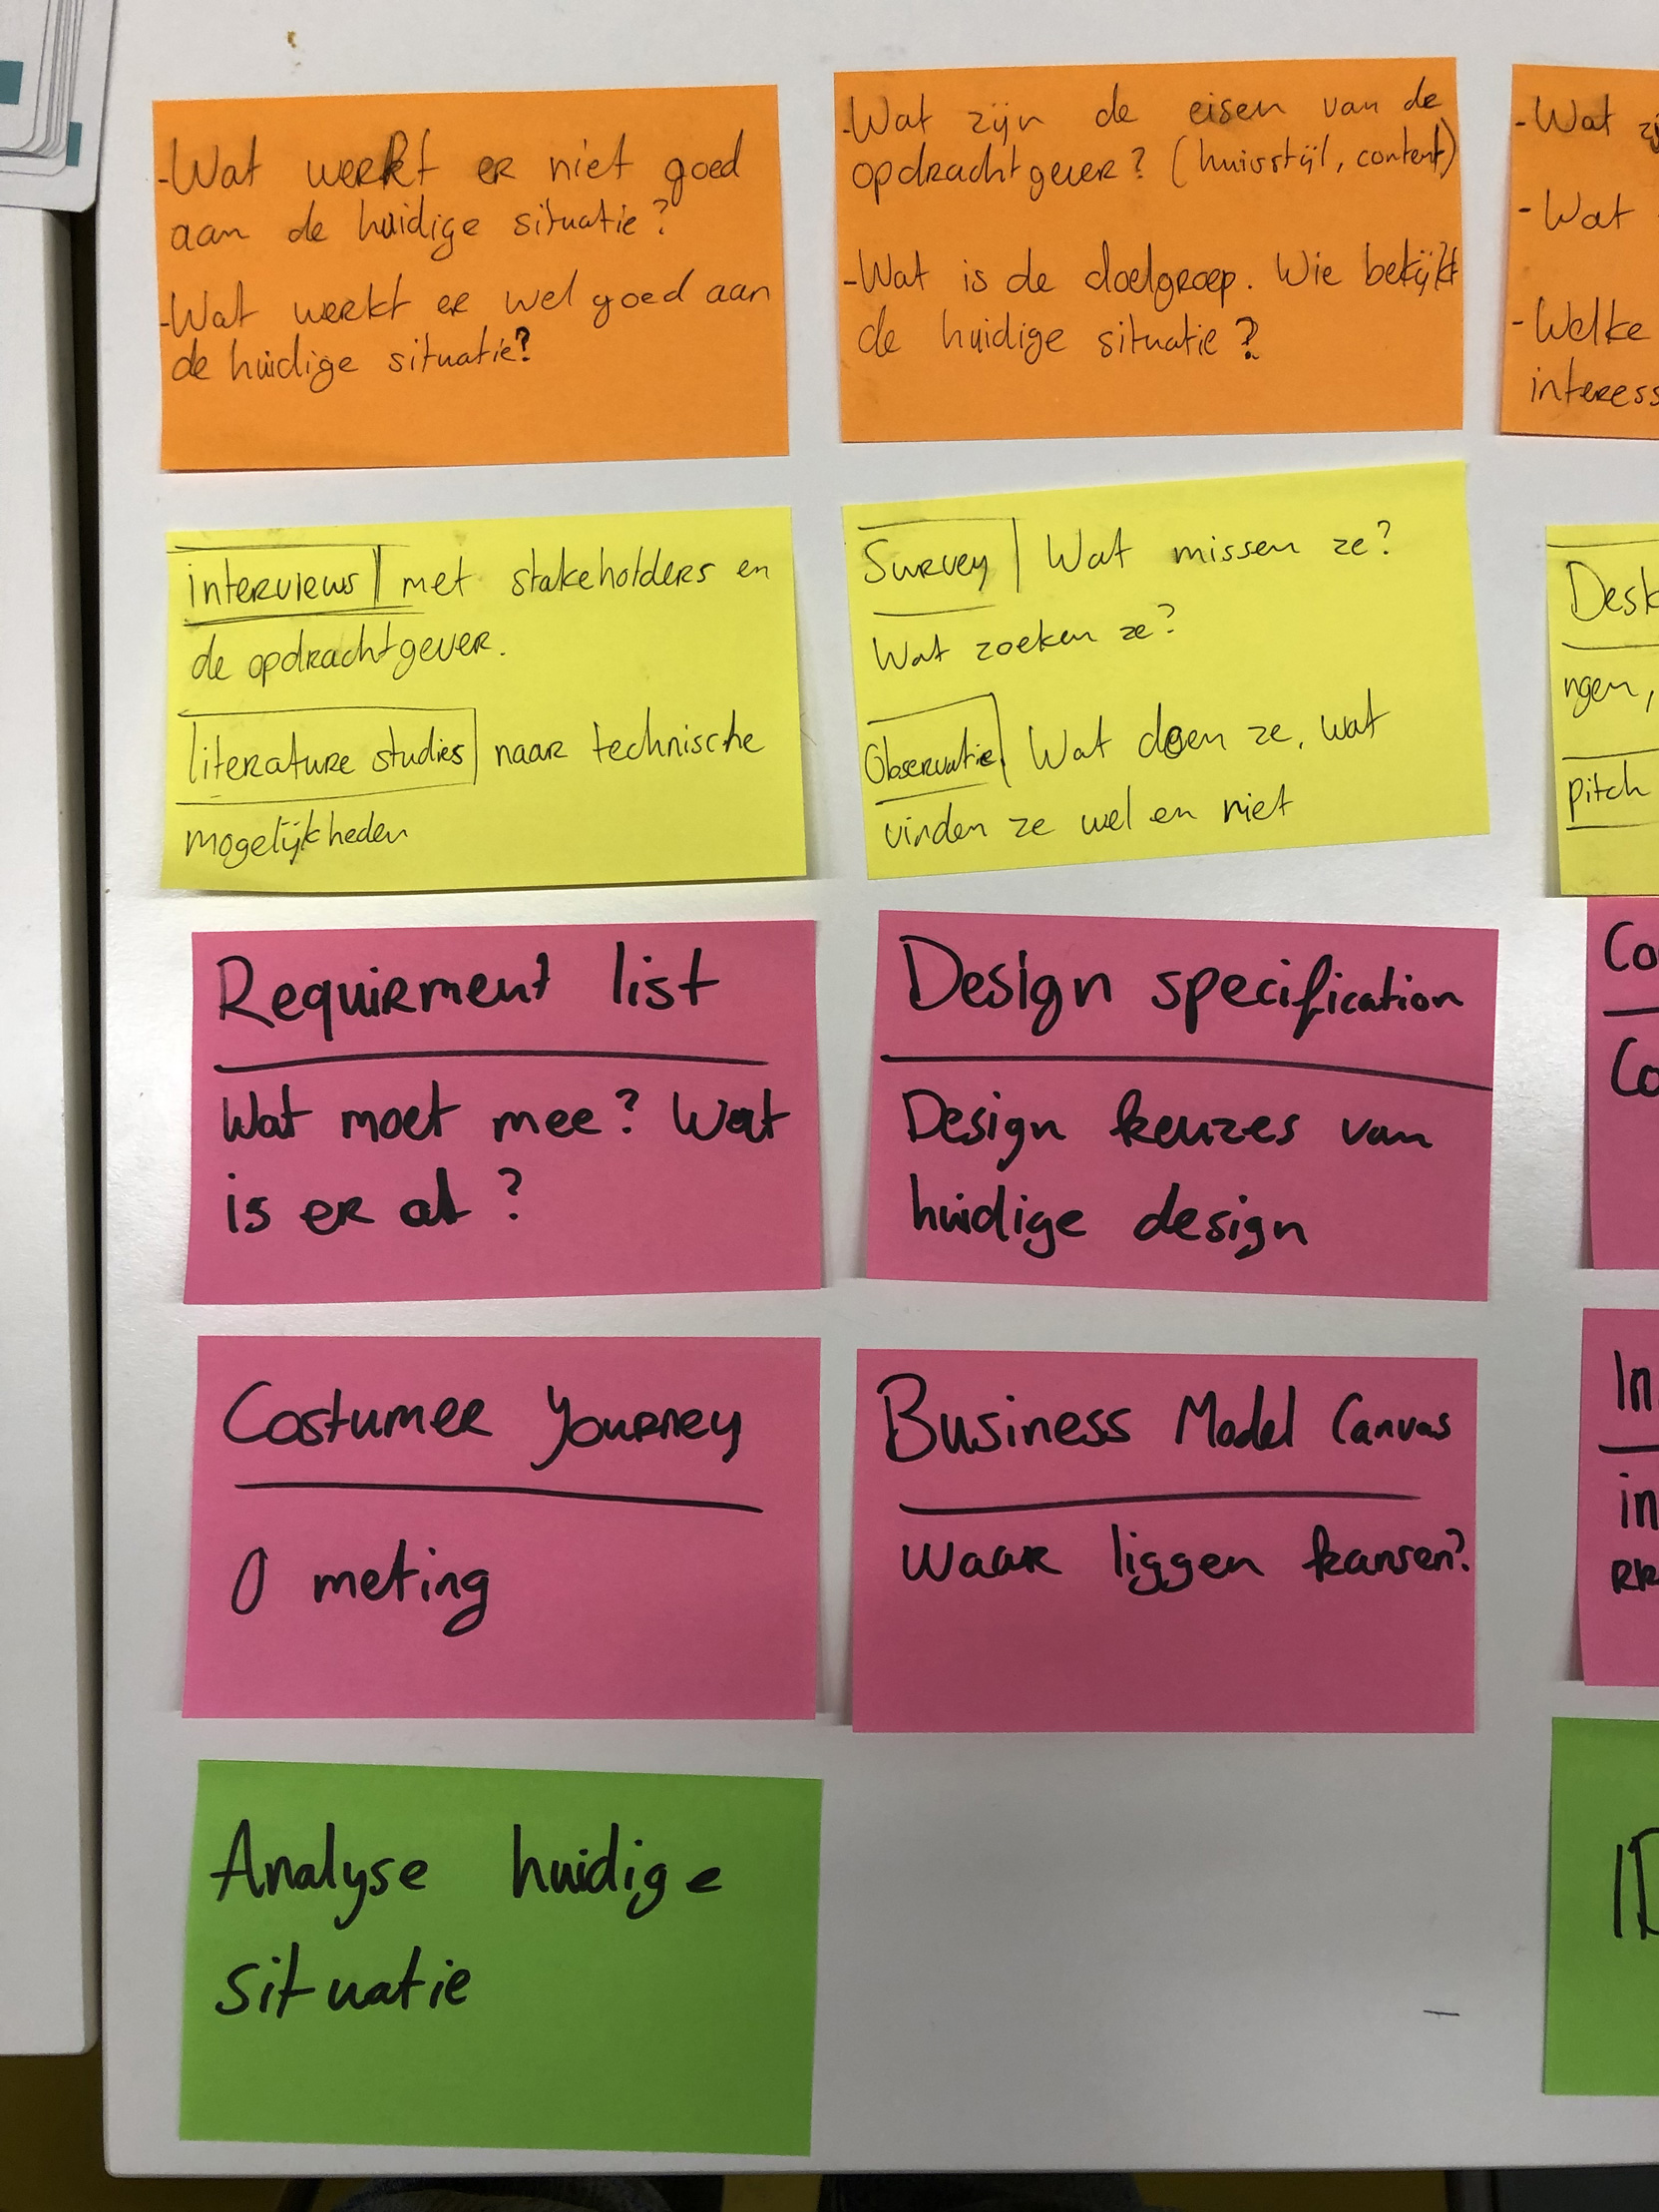 -Wat werkt er niet goed
aan de huidige situatie?
-Wat werkt er wel goed aan
de huidige situatie?
-Wat zijn de eisen van de
opdrachtgever? (huisstijl, content)
-Wat is de doelgroep. Wie bekijkt
de huidige situatie?
-Wat
-Wat
-Welke
interess
interviews met stakeholders en
de opdrachtgever.
literature studies naar technische
mogelijkheden
Survey Wat missen ze?
Wat zoeken ze?
Observatie Wat doen ze, wat
vinden ze wel en niet
Desk
ngen,
pitch
Requirment list
Wat moet mee? Wat
is er al?
Design specification
Design keuzes van
huidige design
Co
Co
Costumer Yourney
0 meting
Business Model Canvas
Waar liggen kansen?
In
in
Analyse huidige
situatie